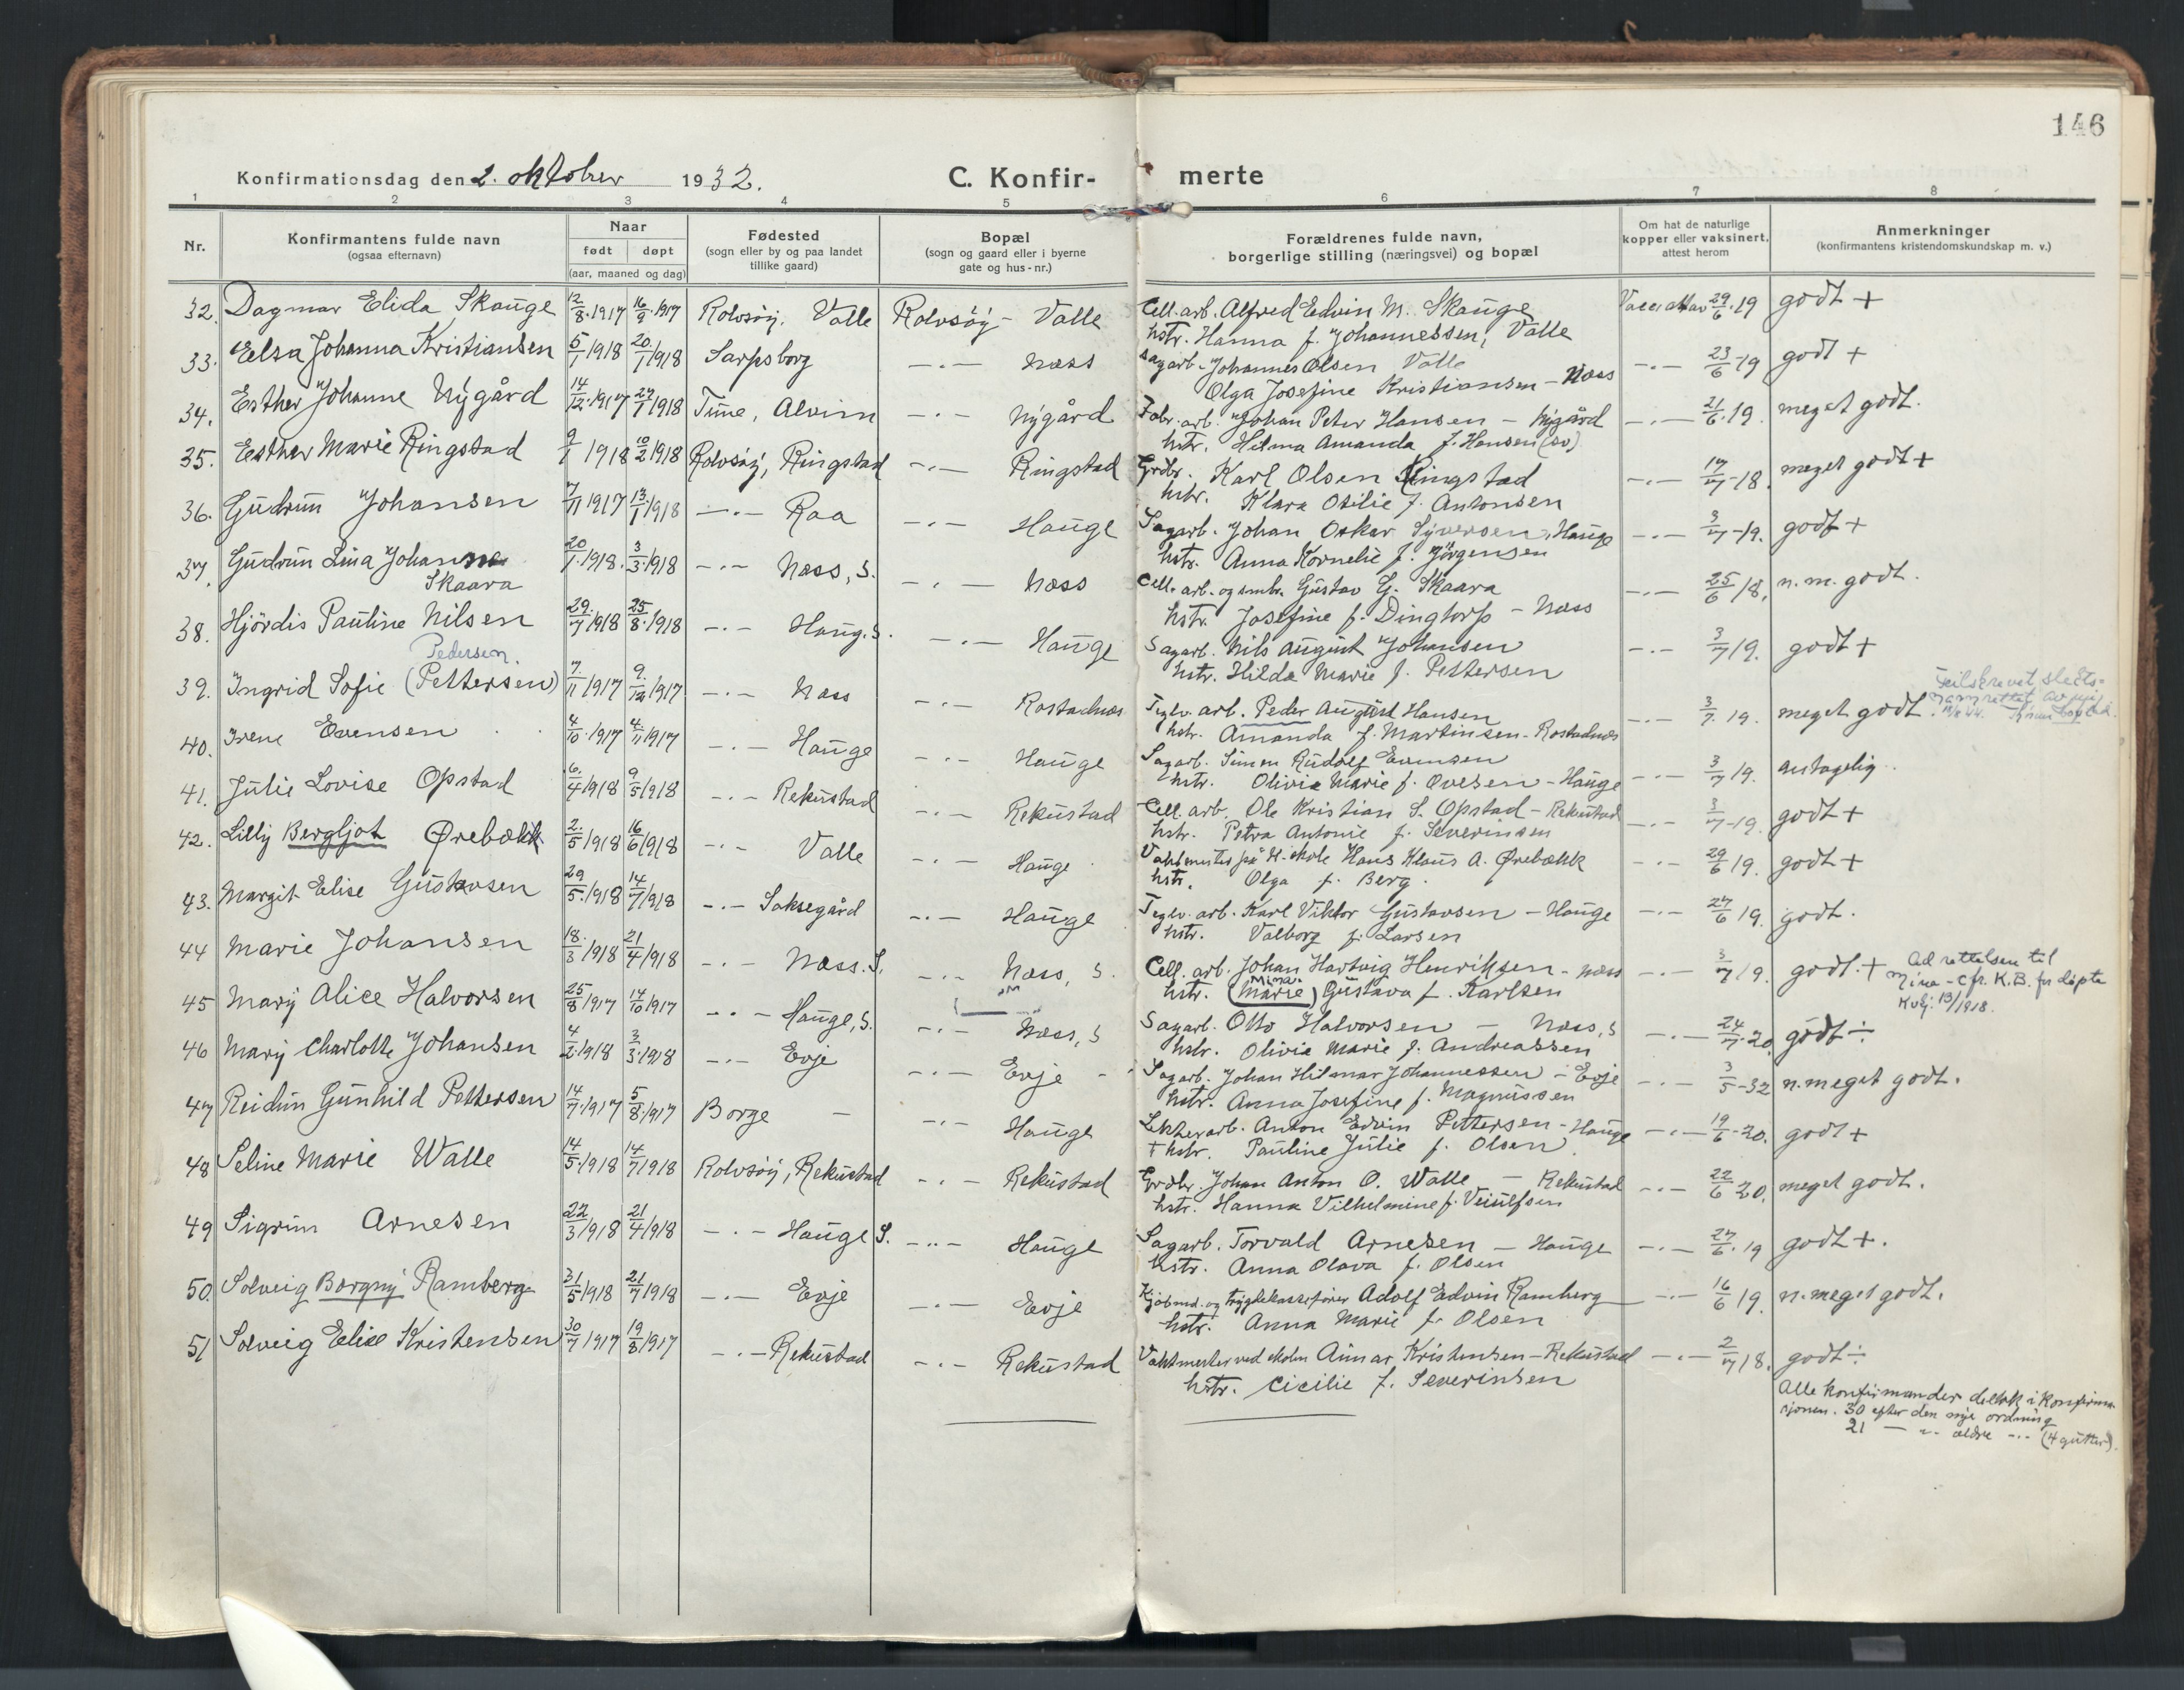 146
Konfirmationsdag den 2. oktober 1932.
C. Konfirmerte
1 2 3 4 5 6 7 8
Nr.
Konfirmantens fulde navn
(ogsaa efternavn)
Naar
født døpt
(aar, maaned og dag)
Fødested
(sogn eller by og paa landet
tillike gaard)
Bopæl
(sogn og gaard eller i byerne
gate og hus-nr.)
Forældrenes fulde navn,
borgerlige stilling (næringsvei) og bopæl
Om hat de naturlige
kopper eller vaksinert,
attest herom
Anmerkninger
(konfirmantens kristendomskundskap m. v.)
32. Dagmar Elida Skauge 12/8 1917 16/9 1917 Rolvsöy, Valle Rolvsöy - Valle Cell. arb. Alfred Edvin M. Skauge 29/6 19 godt +
hstr. Hanna f. Johannessen, Valle
33. Elsa Johanna Kristiansen 5/1 1918 20/1 1918 Sarpsborg -.- Næss Sagarb. Johannes Olsen Valle -.- 23/6 19 godt +
Olga Josefine Kristiansen - Næss
34. Esther Johanne Nygård 14/12 1917 27/1 1918 Tune, Alvim -.- Nygård Fabr. arb. Johan Peter Hansen - Nygård -.- 21/6 19. meget godt.
hstr. Hilma Amanda f. Hansen (sv)
35. Esther Marie Ringstad 9/1 1918 10/2 1918 Rolvsöy, Ringstad -.- Ringstad Grdbr. Karl Olsen Ringstad -.- 17/7 18. meget godt +
hstr. Klara Otilie f. Antonsen
36. Gudrun Johansen 7/11 1917 13/1 1918 -.- Raa -.- Hauge Sagarb. Johan Oskar Syversen, Hauge -.- 3/7 19. godt +
hstr. Anna Kornelie f. Jörgensen
37. Gudrun Lina Johanne 20/1 1918. 3/3 1918 -.- Næss, S. -.- Næss Cell. arb. og smbr. Gustav G. Skaara -.- 25/6 18. n. m. godt.
Skaara
hstr. Josefine f. Dingtorp - Næss
38. Hjördis Pauline Nilsen 29/7 1918 25/8 1918 -.- Haug. S. -.- Hauge Sagarb. Nils August Johansen -.- 3/7 19. godt +
hstr. Hilda Marie f. Pettersen
Pedersen.
39. Ingrid Sofie (Pettersen) 7/11 1917 9/12 1917 -.- Næss -.- Rostadnæs Teglv. arb. Peder August Hansen -.- 3/7 19. meget godt.
hstr. Amanda f. Martinsen - Rostadnæs
Feilskrevet slekts-
navn rettet av mig
40. Irene Evensen 4/10 1917 4/11 1917 -.- Hauge -.- Hauge Sagarb. Simen Rudolf Evensen -.- 3/7 19. antagelig.
hstr. Olivia Marie f. Ovesen - Hauge
41. Julie Lovise Opstad 6/4 1918 9/5 1918 -.- Rekustad -.- Rekustad Cell. arb. Ole Kristian S. Opstad - Rekustad -.- 3/7 19. godt +
hstr. Petra Antonie f. Severinsen
42. Lilly Bergljot Ørebækk 2/5 1918 16/6 1918 -.- Valle -.- Hauge Vaktmester på H. skole Hans Klaus A. Ørebækk -.- 29/6 19. godt +
hstr. Olga f. Berg.
43. Margit Elise Gustavsen 29/5 1918 14/7 1918 -.- Saksegård -.- Hauge Teglv. arb. Karl Viktor Gustavsen - Hauge -.- 27/6 19. godt.
hstr. Valborg f. Larsen
44 Marie Johansen 18/3 1918 21/4 1918 -.- Næss. S. -.- Næss, S. Cell. arb. Johan Hartvig Henriksen - Næss -.- 3/7 19. godt. +
Mina
hstr. (Marie) Gustava f. Karlsen
Ad rettelsen til
Mina - cfr. K.B. for döpte
Kvj. 13/1918.
45 Mary Alice Halvorsen 25/8 1917 14/10 1917 -.- Hauge, S. -.- Næss, S Sagarb. Otto Halvorsen - Næss, S -.- 24/7 20. godt ÷
hstr. Olivia Marie f. Andreassen
46 Mary Charlotte Johansen 4/2 1918 3/3 1918 -.- Evje -.- Evje Sagarb. Johan Hilmar Johannessen - Evje -.- 3/5-32 n. meget godt.
hstr. Anna Josefine f. Magnussen
47 Reidun Gunhild Pettersen 14/7 1917 5/8 1917 Borge - -.- Hauge Lekterarb. Anton Edvin Pettersen - Hauge -.- 19/6 20. godt +
+ hstr. Pauline Julie f. Olsen
48 Seline Marie Walle 14/5 1918 14/7 1918 Rolvsöy, Rekustad -.- Rekustad Grdbr. Johan Anton O. Walle - Rekustad -.- 22/6 20. meget godt.
hstr. Hanna Vilhelmine f. Veiulfsen
49 Sigrun Arnesen 22/3 1918 21/4 1918 -.- Hauge S. -.- Hauge Sagarb. Torvald Arnesen - Hauge -.- 27/6 19 godt +.
hstr. Anna Olava f. Olsen
50. Solveig Borgny Ramberg 31/5 1918 21/7 1918 -.- Evje -.- Evje Kjöbmd. og trygdekassefører Adolf Edvin Ramberg -.- 16/6 19. n. meget godt.
hstr. Anna Marie f. Olsen
51 Solveig Elise Kristensen 30/7 1917 19/8 1917 -.- Rekustad -.- Rekustad Vaktmester ved skolen Ainar Kristensen - Rekustad -.- 2/7 18. godt ÷
hstr. Cicilie f. Severinsen
Alle konfirmander deltok i konfirma-
sjonen. 30 efter den nye ordning
21 - " - ældre -.- (4 gutter).